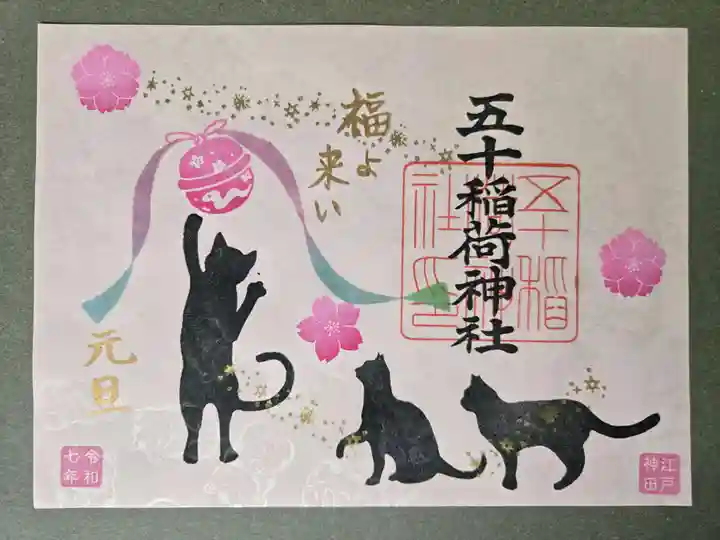 五十稲荷神社
五十稲荷神社印
福よ
来い
元旦
令和
七年
江戸
神田